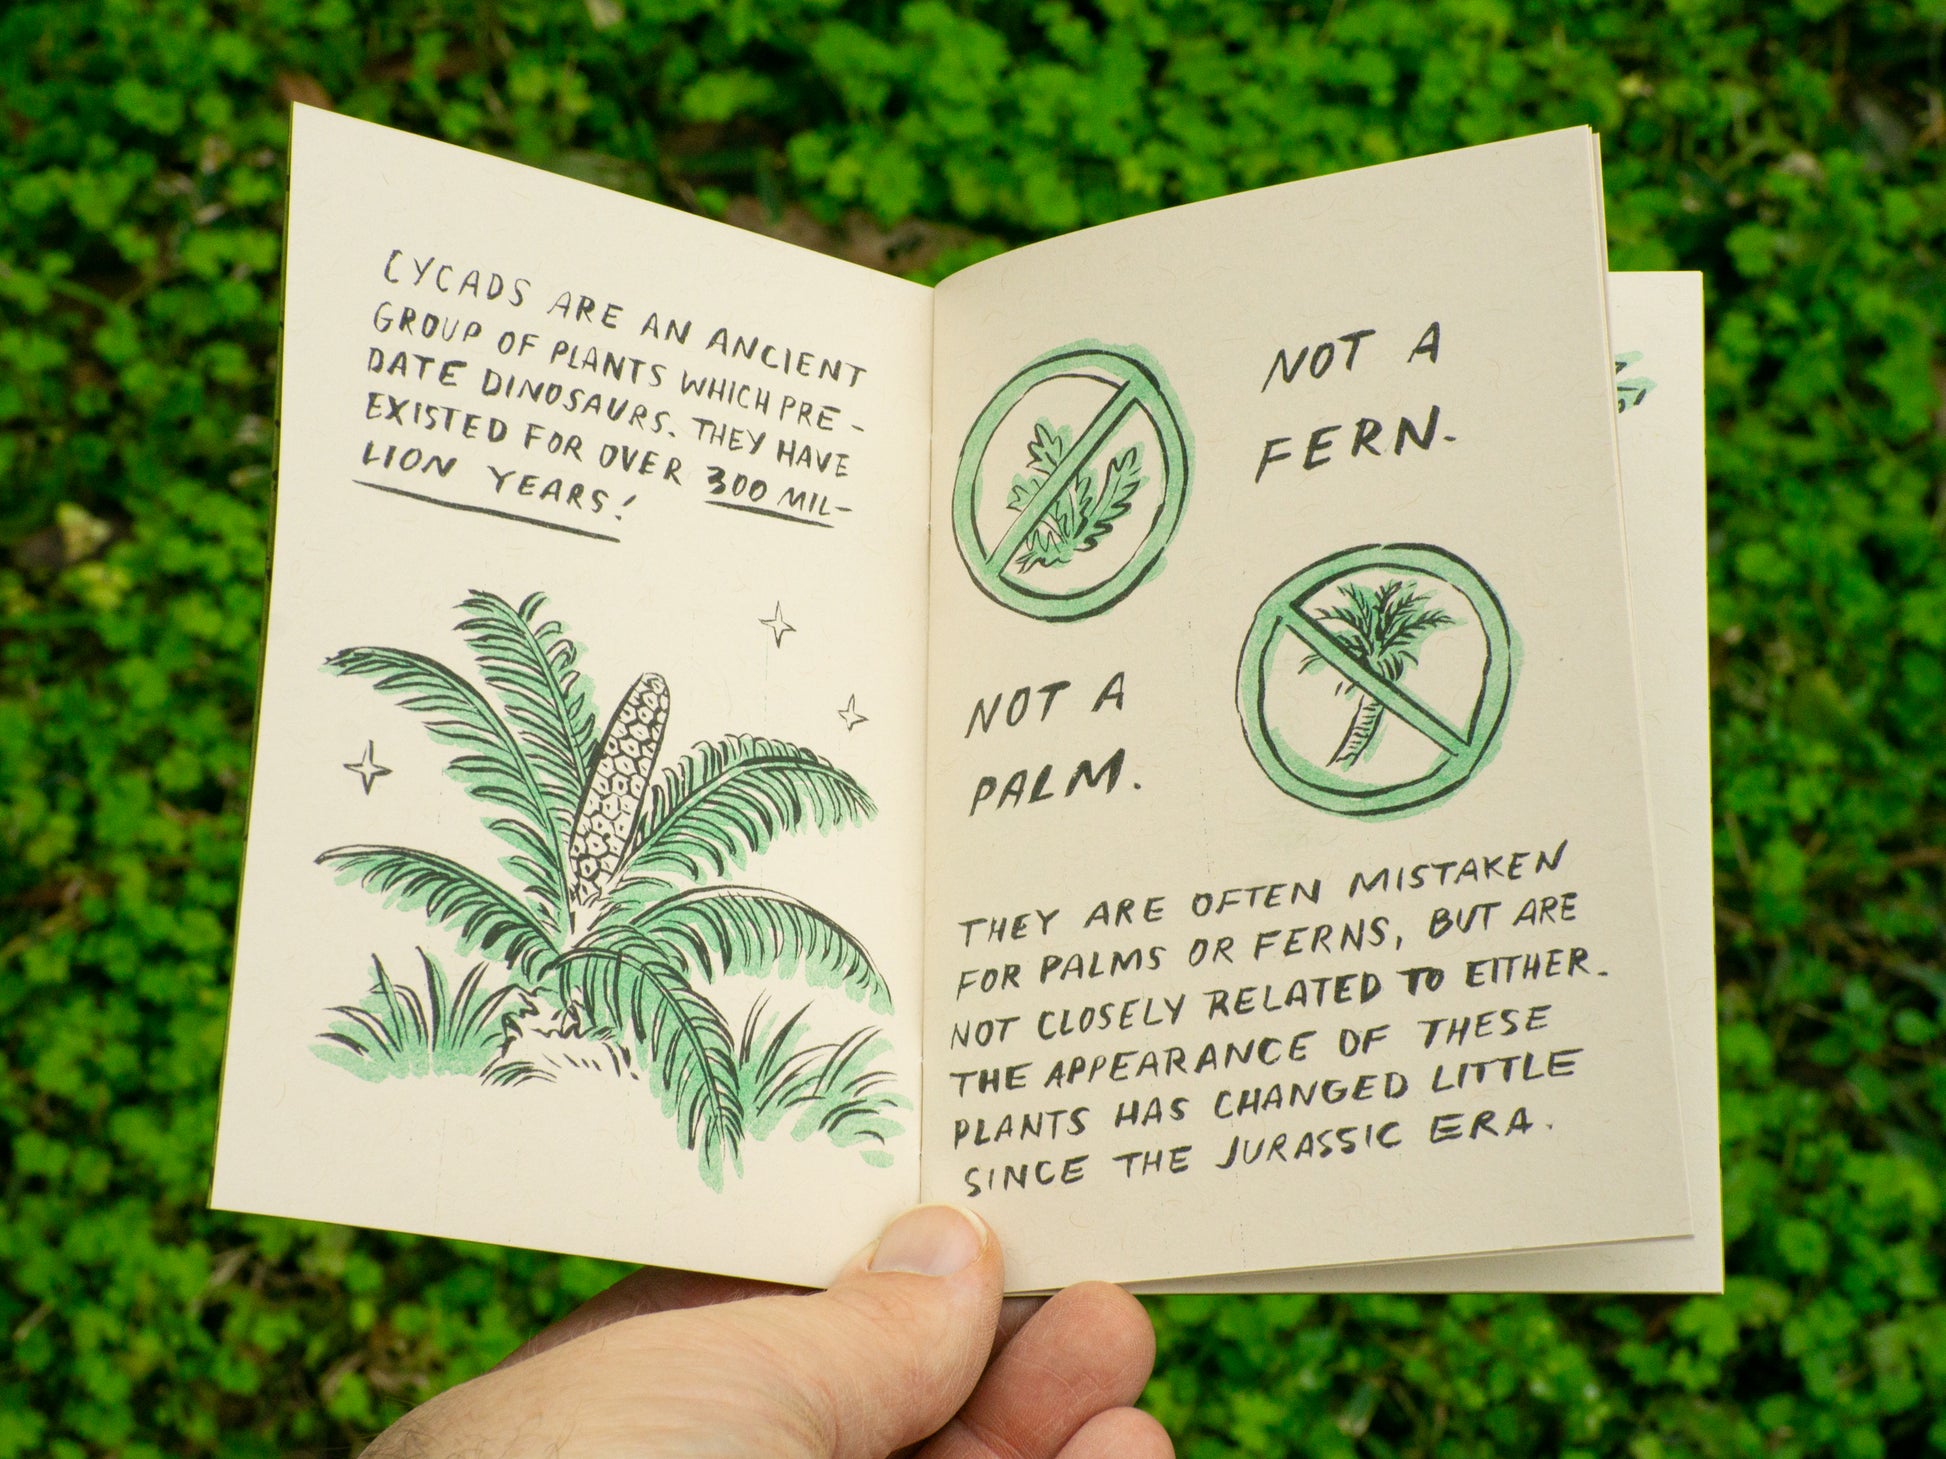 CYCADS ARE AN ANCIENT
GROUP OF PLANTS WHICH PRE-
DATE DINOSAURS. THEY HAVE
EXISTED FOR OVER 300 MIL-
LION YEARS!
NOT A
FERN.
NOT A
PALM.
THEY ARE OFTEN MISTAKEN
FOR PALMS OR FERNS, BUT ARE
NOT CLOSELY RELATED TO EITHER.
THE APPEARANCE OF THESE
PLANTS HAS CHANGED LITTLE
SINCE THE JURASSIC ERA.